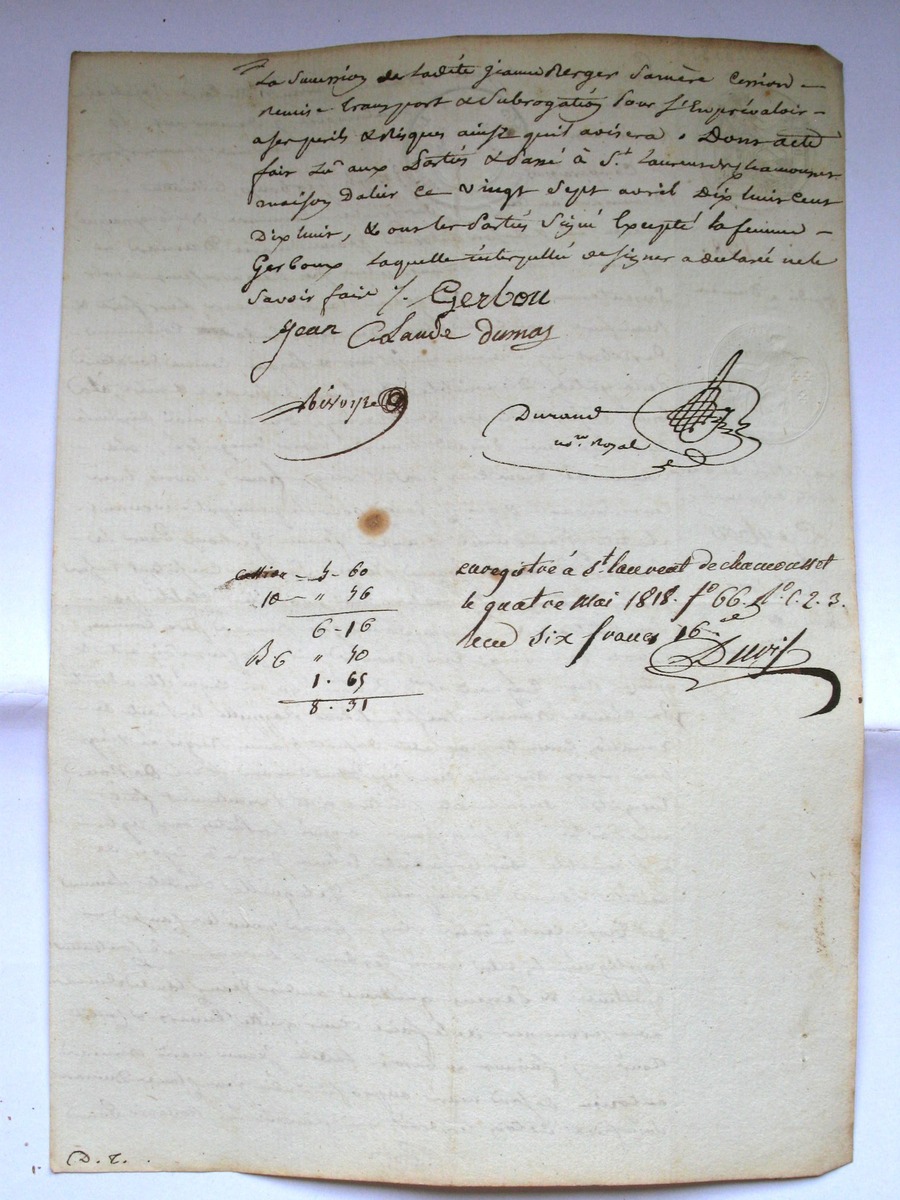 La Succession de ladite jeanne Berger Sa mère Cession
Remise transport & Subrogation pour s'En prévaloir
a ses perils & Risques ainsi quil avisera. Dont acte
fait Lu aux Parties & passé à St. Laurent de Chamousset
maison Dalier Ce Vingt Sept avril Dix huit Cent
Dix huit, & ont les Parties Signé Excepté la femme
Gerboux laquelle interpellée de signer a declaré ne le
Savoir faire /. Gerbou
Jean Claude Dumas
Durand
nre. Royal
Cession 5 - 60
10 " 56
6 - 16
B 6 " 50
1 . 65
8 . 31
enregistré à St. laurent de chamousset
le quatre Mai 1818. fo 66. Ro C. 2. 3.
Recu six francs 16 ce
D. T.